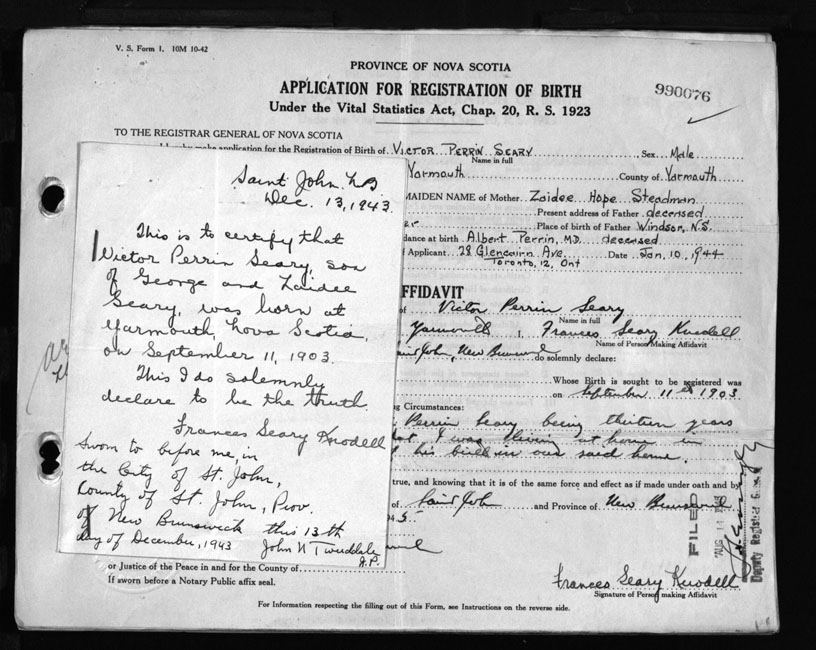 V. S. Form 1. 10M 10-42
PROVINCE OF NOVA SCOTIA
APPLICATION FOR REGISTRATION OF BIRTH
990076
Under the Vital Statistics Act, Chap. 20, R. S. 1923
TO THE REGISTRAR GENERAL OF NOVA SCOTIA
I hereby make application for the Registration of Birth of VICTOR PERRIN SEARY Sex Male
Name in full
Yarmouth County of Yarmouth
MAIDEN NAME of Mother Zaidee Hope Steadman
Present address of Father deceased
er Place of birth of Father Windsor, N.S.
dance at birth Albert Perrin, M.D. deceased
of Applicant 28 Glencairn Ave. Date Jan. 10, 1944
Toronto, 12, Ont
AFFIDAVIT
of Victor Perrin Seary
Name in full
Yarmouth I, Frances Seary Knodell
Name of Person Making Affidavit
Saint John, New Brunswick do solemnly declare:
Whose Birth is sought to be registered was
on September 11th 1903
ng Circumstances:
Perrin Seary being thirteen years
I was living at home in
his birth in our said home.
true, and knowing that it is of the same force and effect as if made under oath and by
of Saint John and Province of New Brunswick
or Justice of the Peace in and for the County of
If sworn before a Notary Public affix seal.
Frances Seary Knodell
Signature of Person making Affidavit
For Information respecting the filling out of this Form, see Instructions on the reverse side.
FILED
AUG 14 1944
Deputy Registrar General
Saint John N B
Dec. 13, 1943.
This is to certify that
Victor Perrin Seary, son
of George and Zaidee
Seary, was born at
Yarmouth, Nova Scotia,
on September 11, 1903.
This I do solemnly
declare to be the truth.
Frances Seary Knodell
Sworn to before me, in
the City of St. John,
County of St. John, Prov.
of New Brunswick this 13th
day of December, 1943 John N Tweddale
J.P.